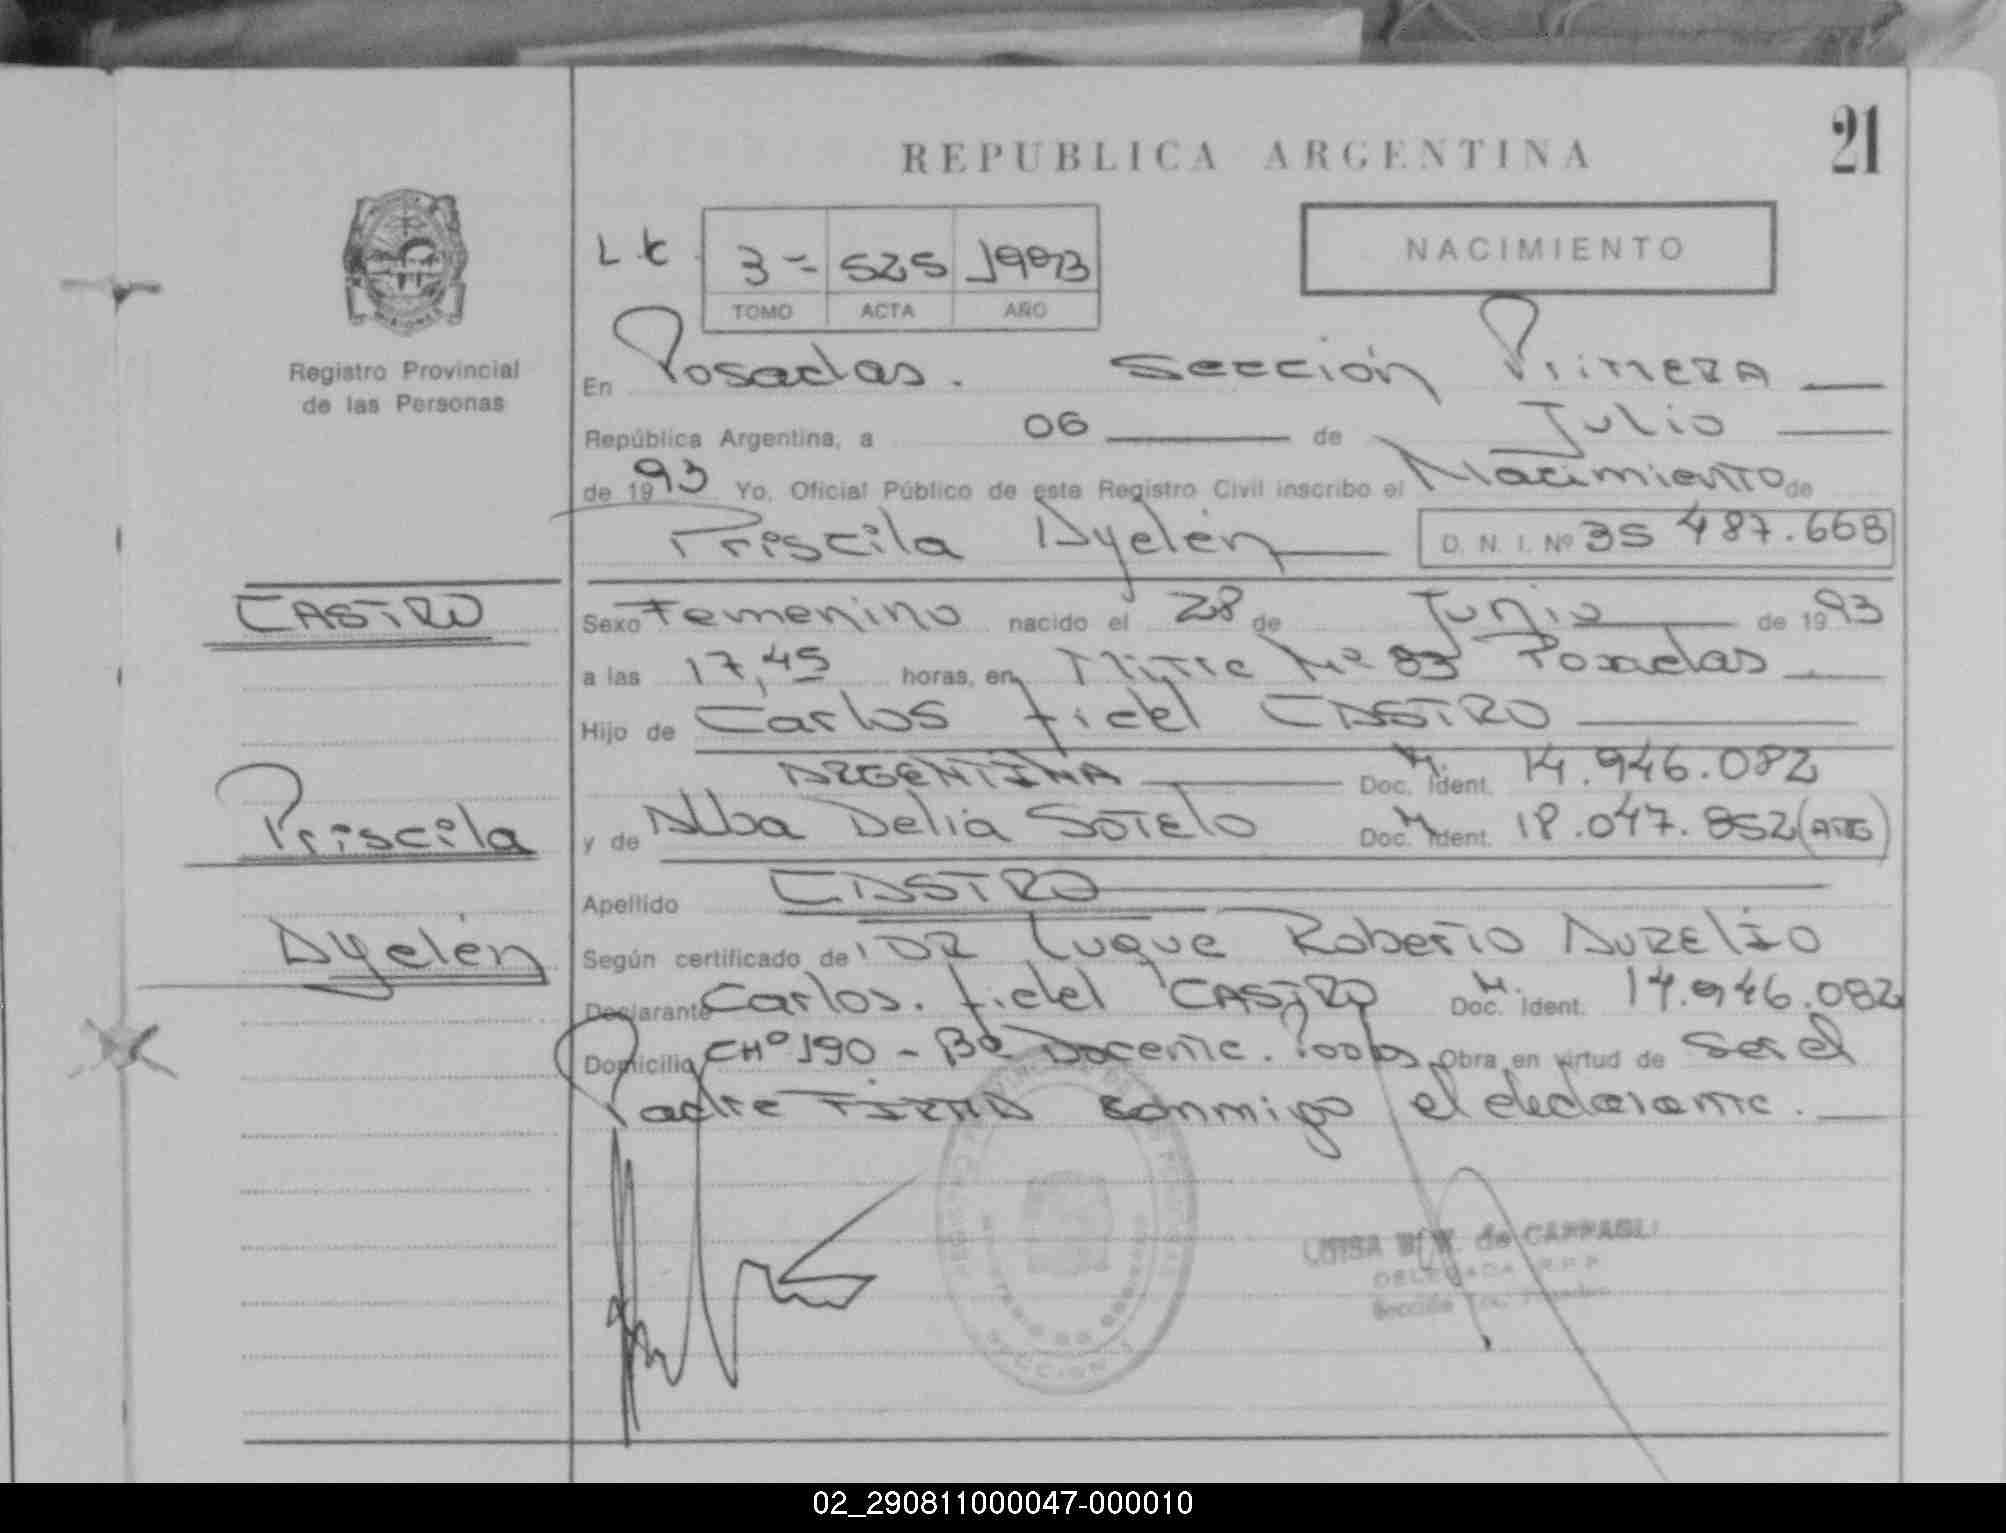 REPUBLICA ARGENTINA
21
NACIMIENTO
L. C. 3 - 525 1993
TOMO ACTA AÑO
MISIONES
Registro Provincial
de las Personas
En Posadas. Sección Primera
República Argentina, a 06 de Julio
de 1993 Yo, Oficial Público de este Registro Civil inscribo el Nacimiento de
Priscila Ayelén D. N. I. Nº 35 487.668
CASTRO
Priscila
Ayelén
Sexo Femenino nacido el 28 de Junio de 1993
a las 17,45 horas, en Mitre Nº 83 Posadas
Hijo de Carlos Fidel CASTRO
ARGENTINA Doc. M. Ident. 14.946.082
y de Alba Delia SOTELO Doc. M. Ident. 18.047.852 (ARG)
Apellido CASTRO
Según certificado de: DR Luque Roberto AURELIO
Declarante Carlos. Fidel CASTRO Doc. M. Ident. 14.946.082
Domicilio CHº 190 - Bº Docente. Pdas Obra en virtud de Ser el
Padre FIRMA conmigo el declarante.
LUISA de
DELEGADA R.P.P.
Sección
02_290811000047-000010